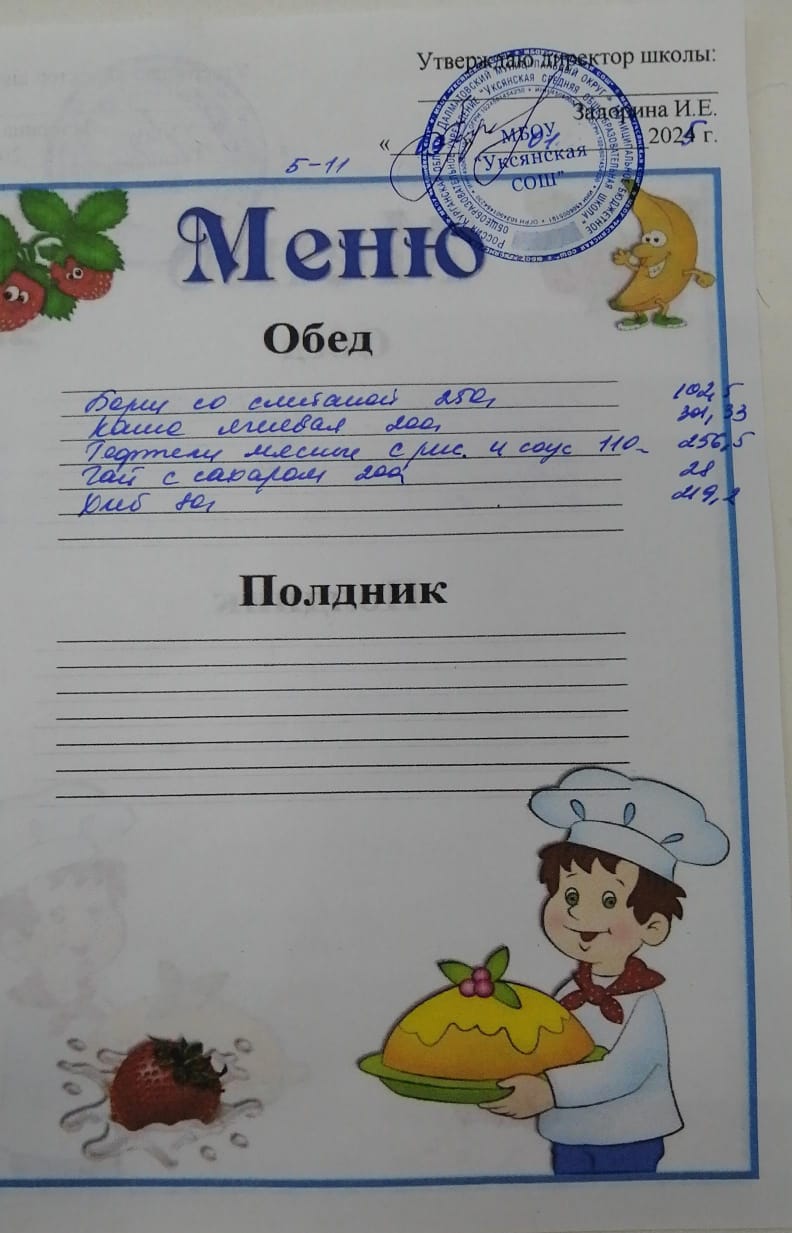 Утверждаю директор школы:
Задорина И.Е.
« » 01 2025 г.
МБОУ
"Уксянская
СОШ"
5-11
Меню
Обед
Борщ со сметаной 250г 102,5
Каша ячневая 200г 301,33
Тефтели мясные с рис. и соус 110г 256,5
Чай с сахаром 200г 28
Хлеб 80г 219,2
Полдник